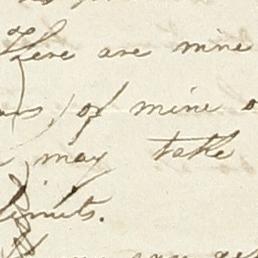 There are mine
of mine
may take
limits.